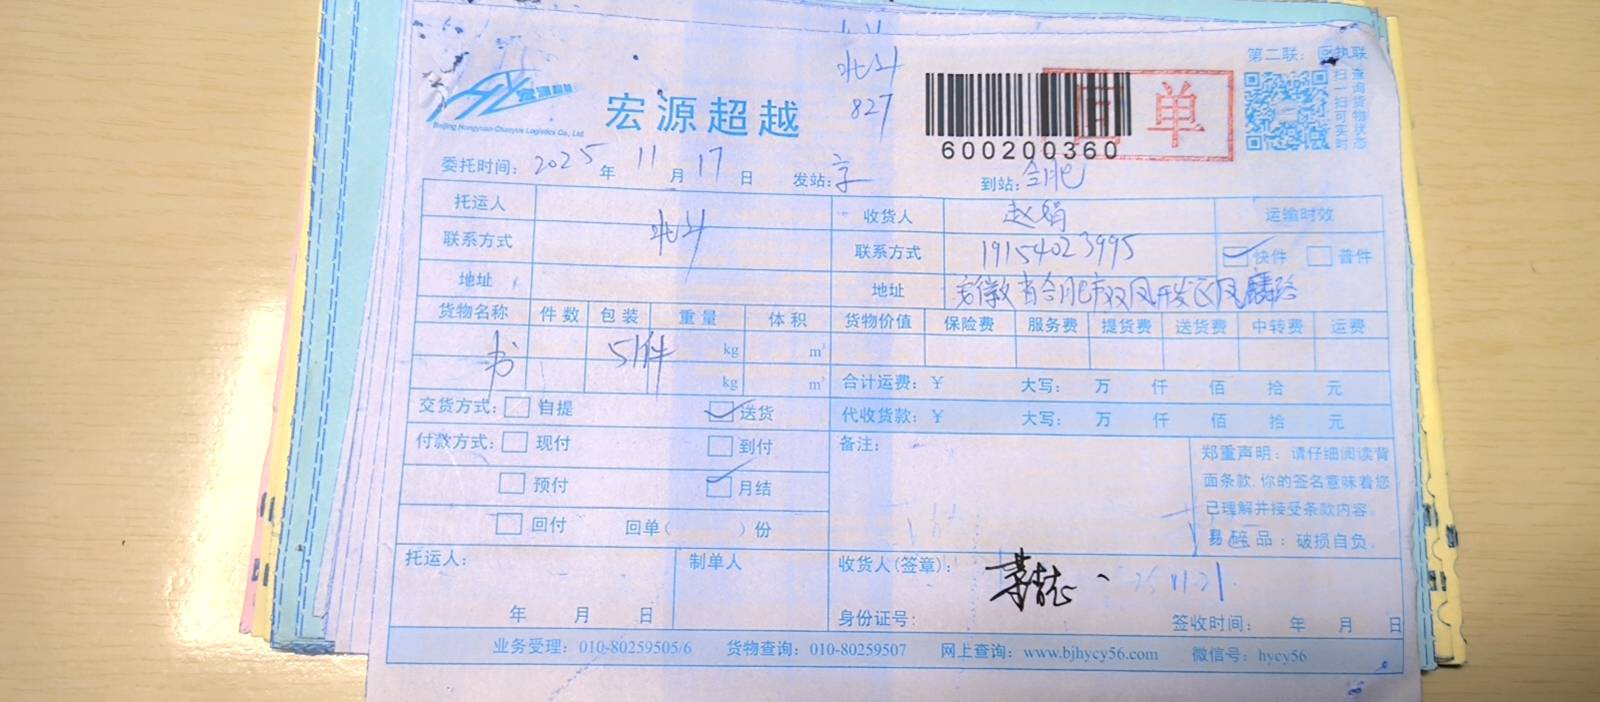 北斗
827
第二联：回执联
扫一扫可实时
查询货物状态
宏源超越
Beijing Hongyuan Chaoyue Logistics Co., Ltd.
宏源超越
回单
600200360
委托时间：2025年11月17日 发站：京 到站：合肥
托运人 北斗 收货人 赵娟 运输时效
联系方式 联系方式 19154023995 快件 普件
地址 地址 安徽省合肥市双凤开发区凤麟路
货物名称 件数 包装 重量 体积 货物价值 保险费 服务费 提货费 送货费 中转费 运费
书 51件 kg m³
kg m³ 合计运费：￥ 大写： 万 仟 佰 拾 元
交货方式： 自提 送货 代收货款：￥ 大写： 万 仟 佰 拾 元
付款方式： 现付 到付 备注：
预付 月结
回付 回单（ ）份
郑重声明：请仔细阅读背
面条款,你的签名意味着您
已理解并接受条款内容。
易碎品：破损自负。
托运人： 制单人 收货人(签章)： 25 11.21
年 月 日 身份证号： 签收时间： 年 月 日
业务受理：010-80259505/6 货物查询：010-80259507 网上查询：www.bjhycy56.com 微信号：hycy56